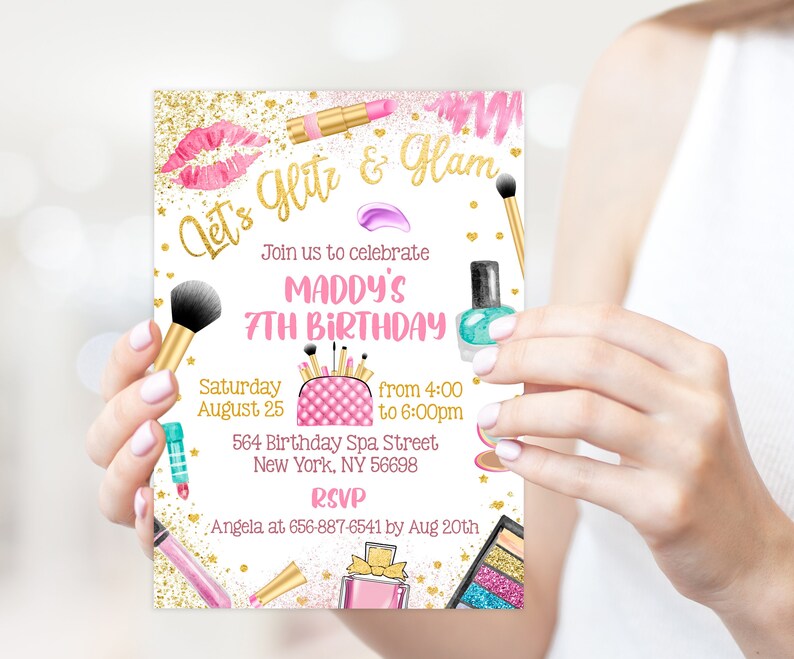 Let's Glitz & Glam
Join us to celebrate
MADDY'S
7TH BIRTHDAY
Saturday
August 25
from 4:00
to 6:00pm
564 Birthday Spa Street
New York, NY 56698
RSVP
Angela at 656-887-6541 by Aug 20th